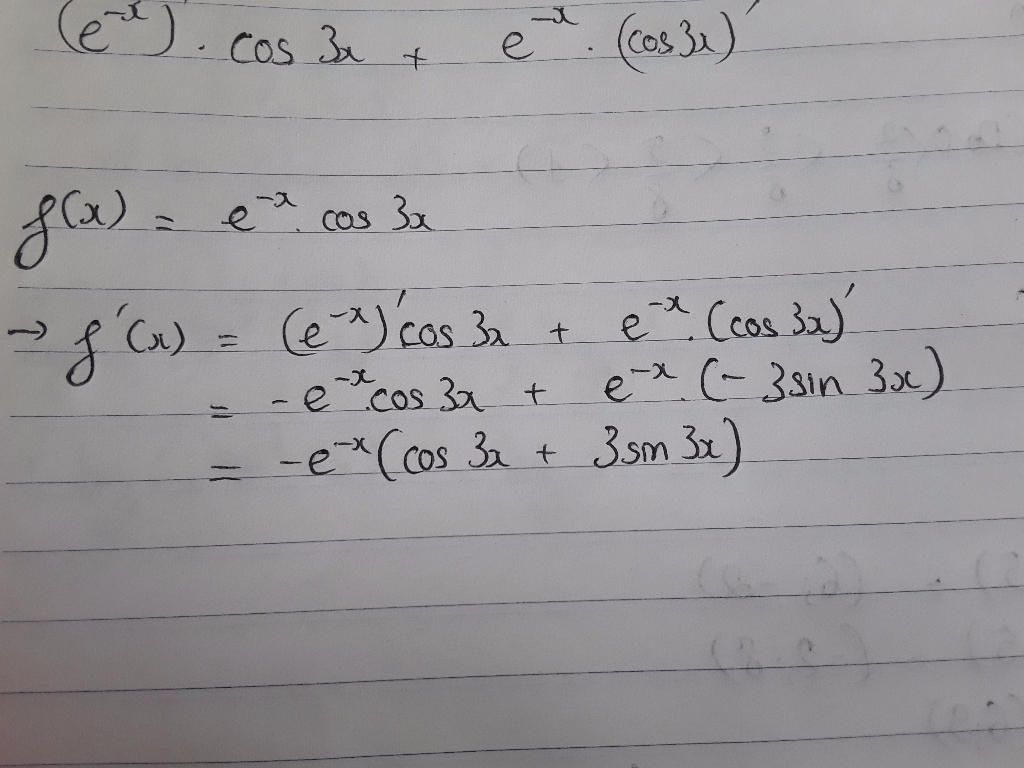 (e⁻ˣ). cos 3x + e⁻ˣ. (cos3x)′
f(x) = e⁻ˣ. cos 3x
→ f′(x) = (e⁻ˣ)′cos 3x + e⁻ˣ. (cos 3x)′
= -e⁻ˣ.cos 3x + e⁻ˣ. (- 3sin 3x)
= -e⁻ˣ(cos 3x + 3sin 3x)